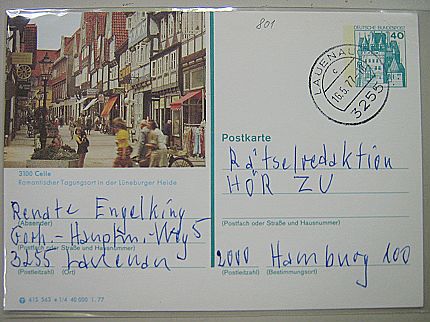 801
DEUTSCHE BUNDESPOST
40
LAUENAU
c
16.5.77
3255
3100 Celle
Romantischer Tagungsort in der Lüneburger Heide
Renate Engelking
(Absender)
Gerh.-Hauptm.-Weg 5
(Postfach oder Straße und Hausnummer)
3255 Lauenau
(Postleitzahl) (Ort)
e 1/4 40 000 1.77
Postkarte
Rätselredaktion
HÖR ZU
(Postfach oder Straße und Hausnummer)
2000 Hamburg 100
(Postleitzahl) (Bestimmungsort)